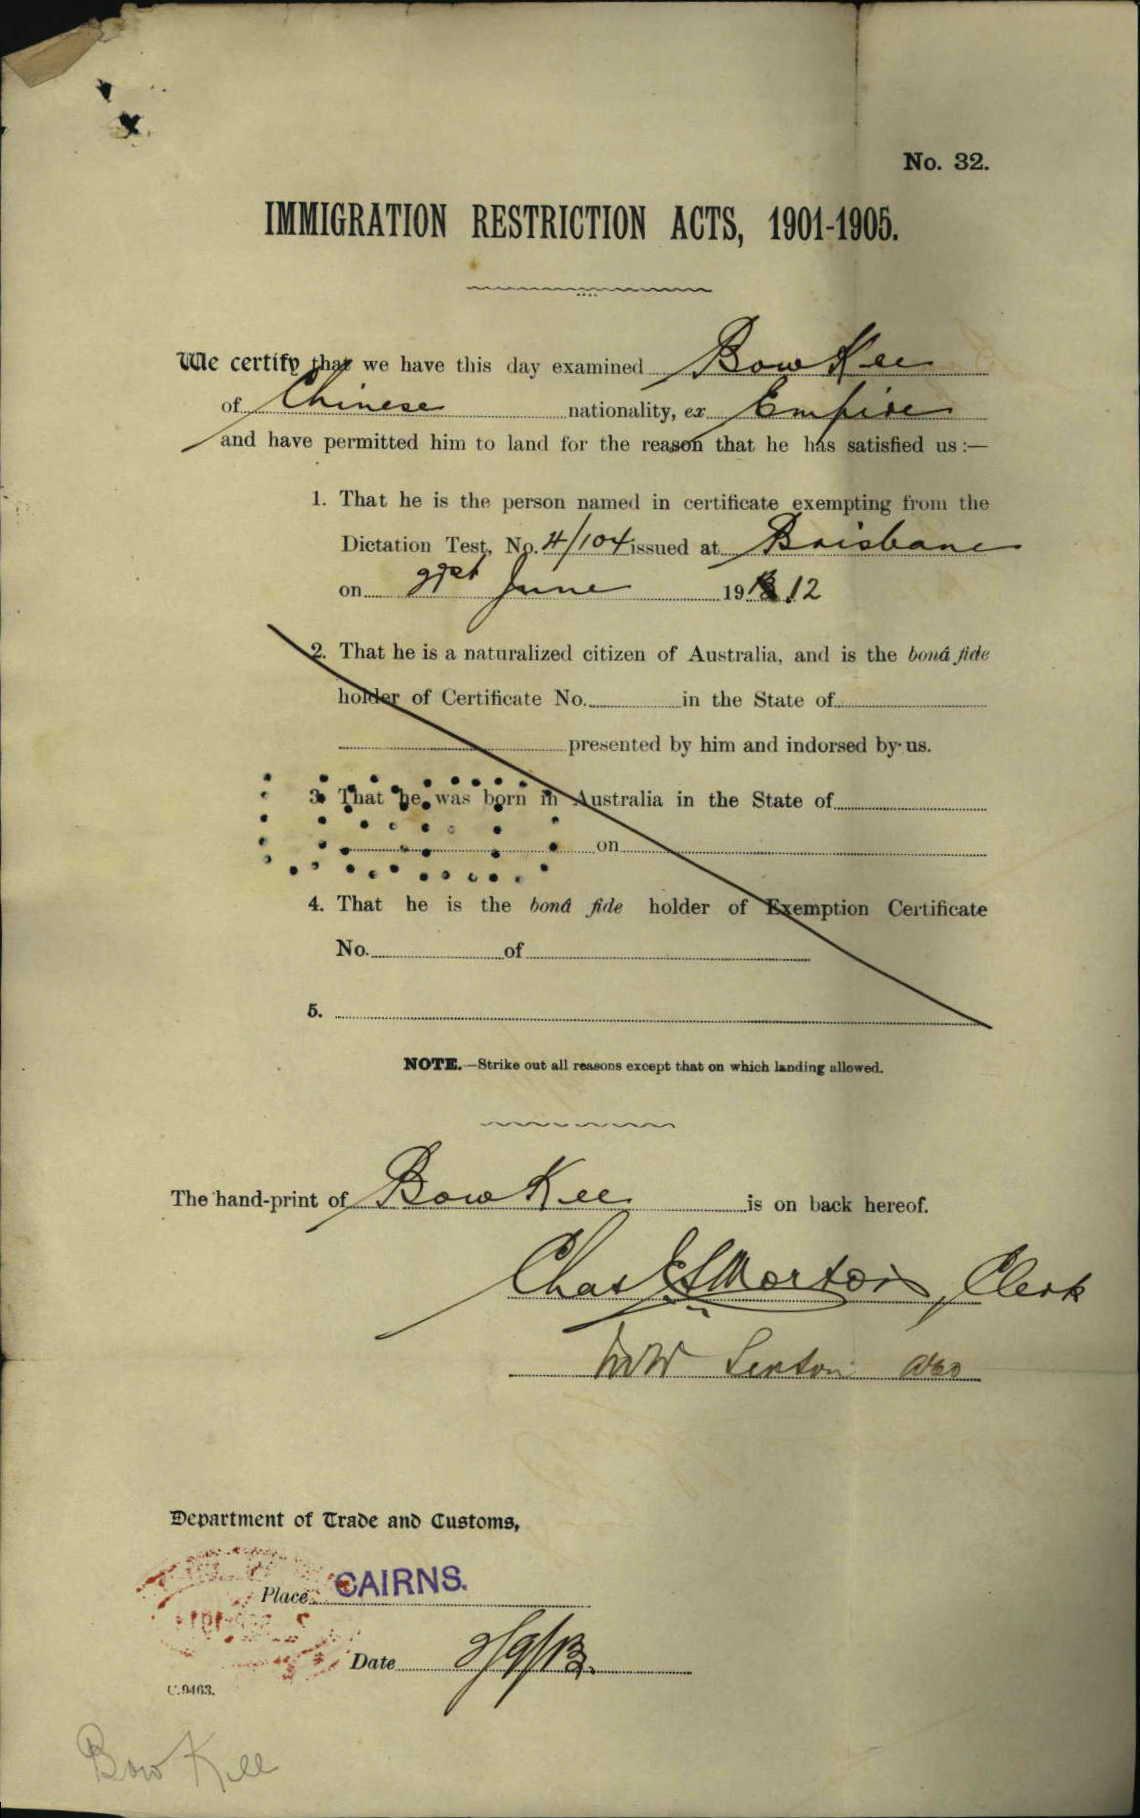 No. 32.
IMMIGRATION RESTRICTION ACTS, 1901-1905.
We certify that we have this day examined Bow Kee
of Chinese nationality, ex Empire
and have permitted him to land for the reason that he has satisfied us :—
1. That he is the person named in certificate exempting from the
Dictation Test, No. 4/104 issued at Brisbane
on June 19 12
2. That he is a naturalized citizen of Australia, and is the bonâ fide
holder of Certificate No. in the State of
presented by him and indorsed by us.
3. That he was born in Australia in the State of
on
4. That he is the bonâ fide holder of Exemption Certificate
No. of
5.
NOTE.—Strike out all reasons except that on which landing allowed.
The hand-print of Bow Kee is on back hereof.
Chas Morton, Clerk
Sexton
Department of Trade and Customs,
Place CAIRNS.
Date 2/9/13.
C.9463.
Bow Kee